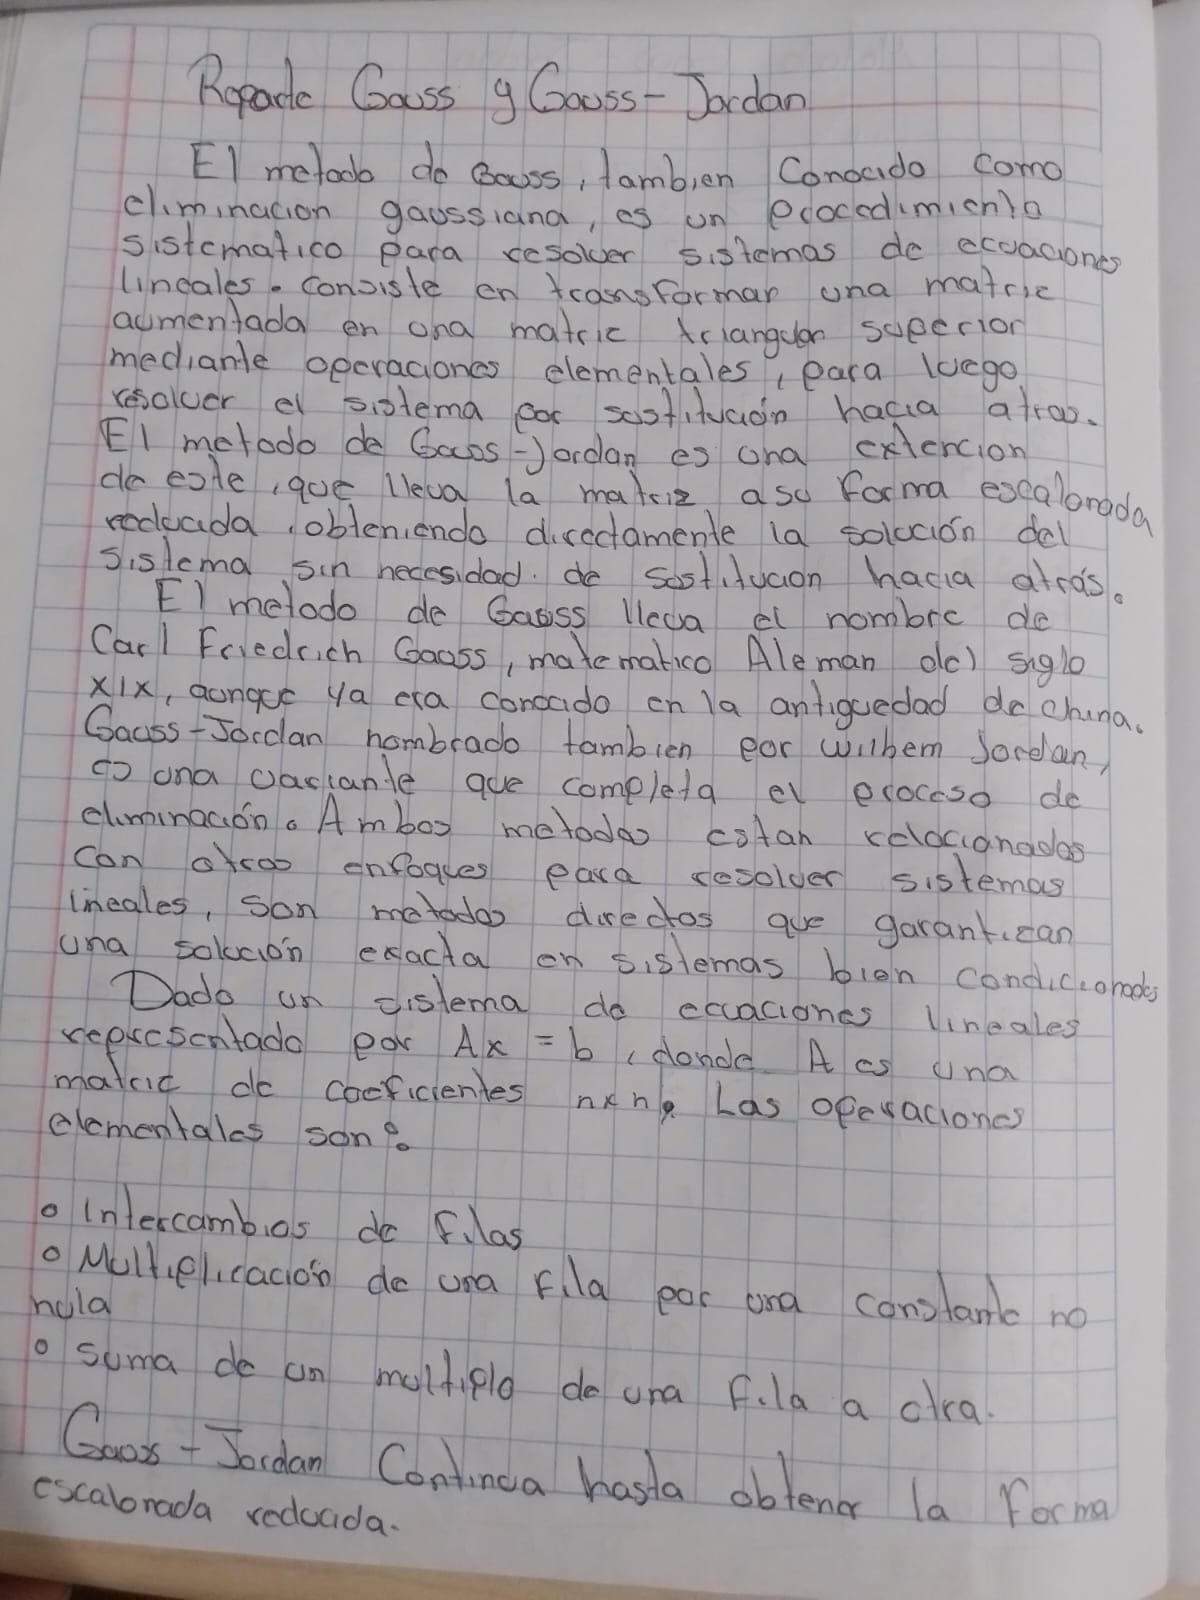 Reporte Gauss y Gauss-Jordan
El metodo de Gauss, tambien Conocido como
eliminacion gaussiana, es un procedimiento
sistematico para resolver sistemas de ecuaciones
lineales. Consiste en transformar una matriz
aumentada en una matriz triangular superior
mediante operaciones elementales, para luego
resolver el sistema por sustitución hacia atras.
El metodo de Gauss-Jordan es una extencion
de este, que lleva la matriz a su forma escalonada
reducida, obteniendo directamente la solución del
sistema sin necesidad de sustitucion hacia atrás.
El metodo de Gauss lleva el nombre de
Carl Friedrich Gauss, matematico Aleman del siglo
XIX, aunque ya era conocido en la antiguedad de china.
Gauss-Jordan nombrado tambien por Wilhem Jordan,
es una variante que completa el proceso de
eliminación. Ambos metodos estan relacionados
con otros enfoques para resolver sistemas
lineales, son metodos directos que garantizan
una solución exacta en sistemas bien condicionados
Dado un sistema de ecuaciones lineales
representado por Ax = b, donde A es una
matriz de coeficientes nxn. Las operaciones
elementales son:
° Intercambios de filas
° Multiplicación de una fila por una constante no
nula
° suma de un multiplo de una fila a otra.
Gauss-Jordan Continua hasta obtener la forma
escalonada reducida.